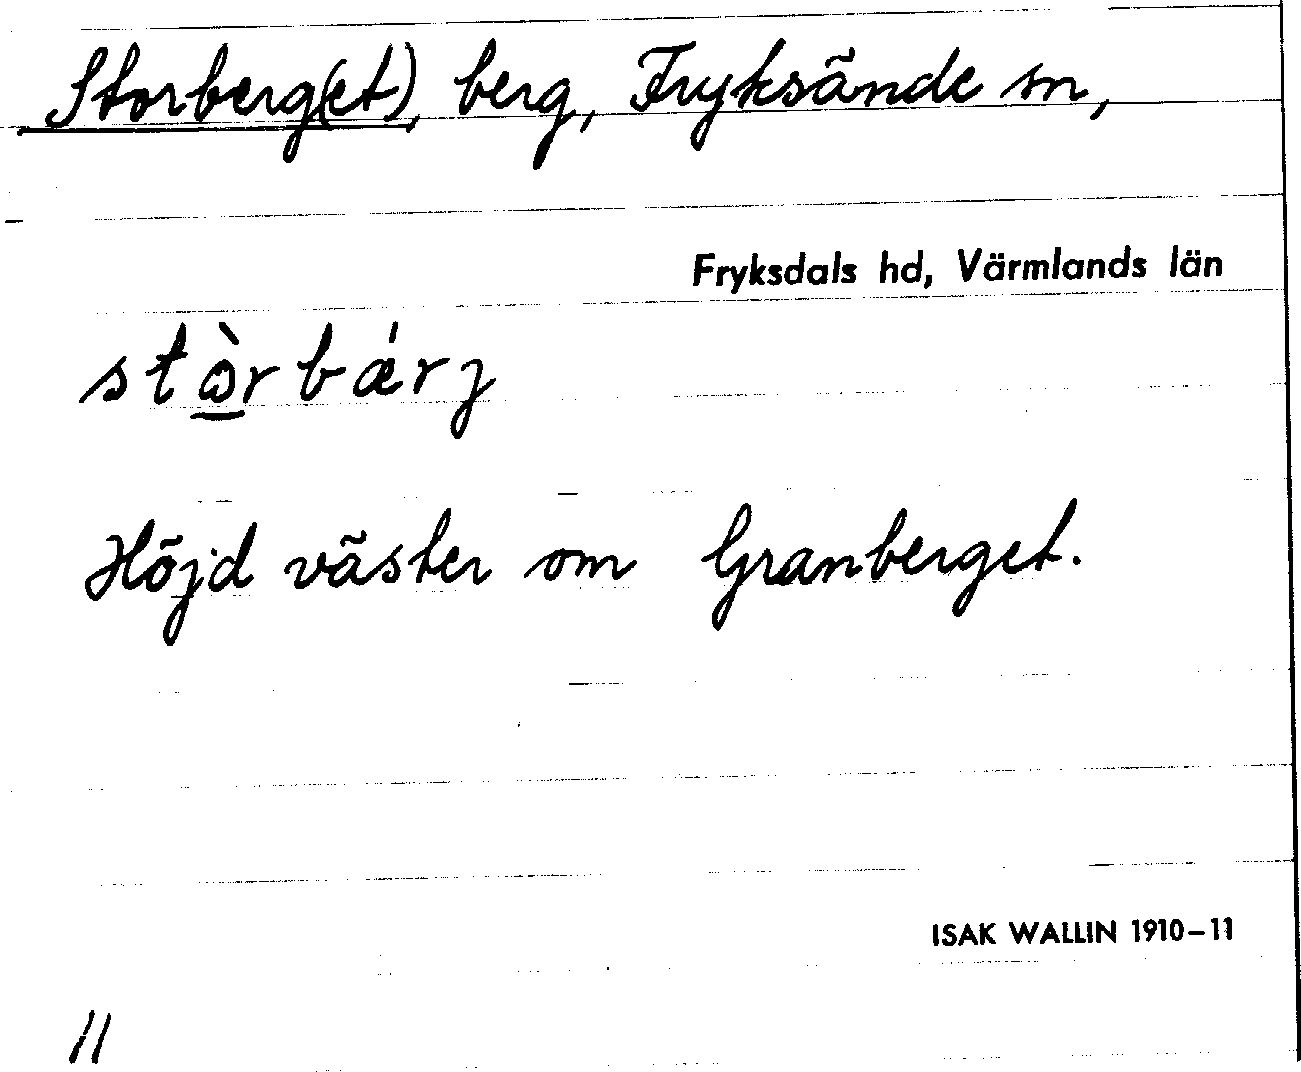 Storberg(et), berg, Fryksände sn,
Fryksdals hd, Värmlands län
stòrbǽrj
Höjd väster om Granberget.
ISAK WALLIN 1910–11
11